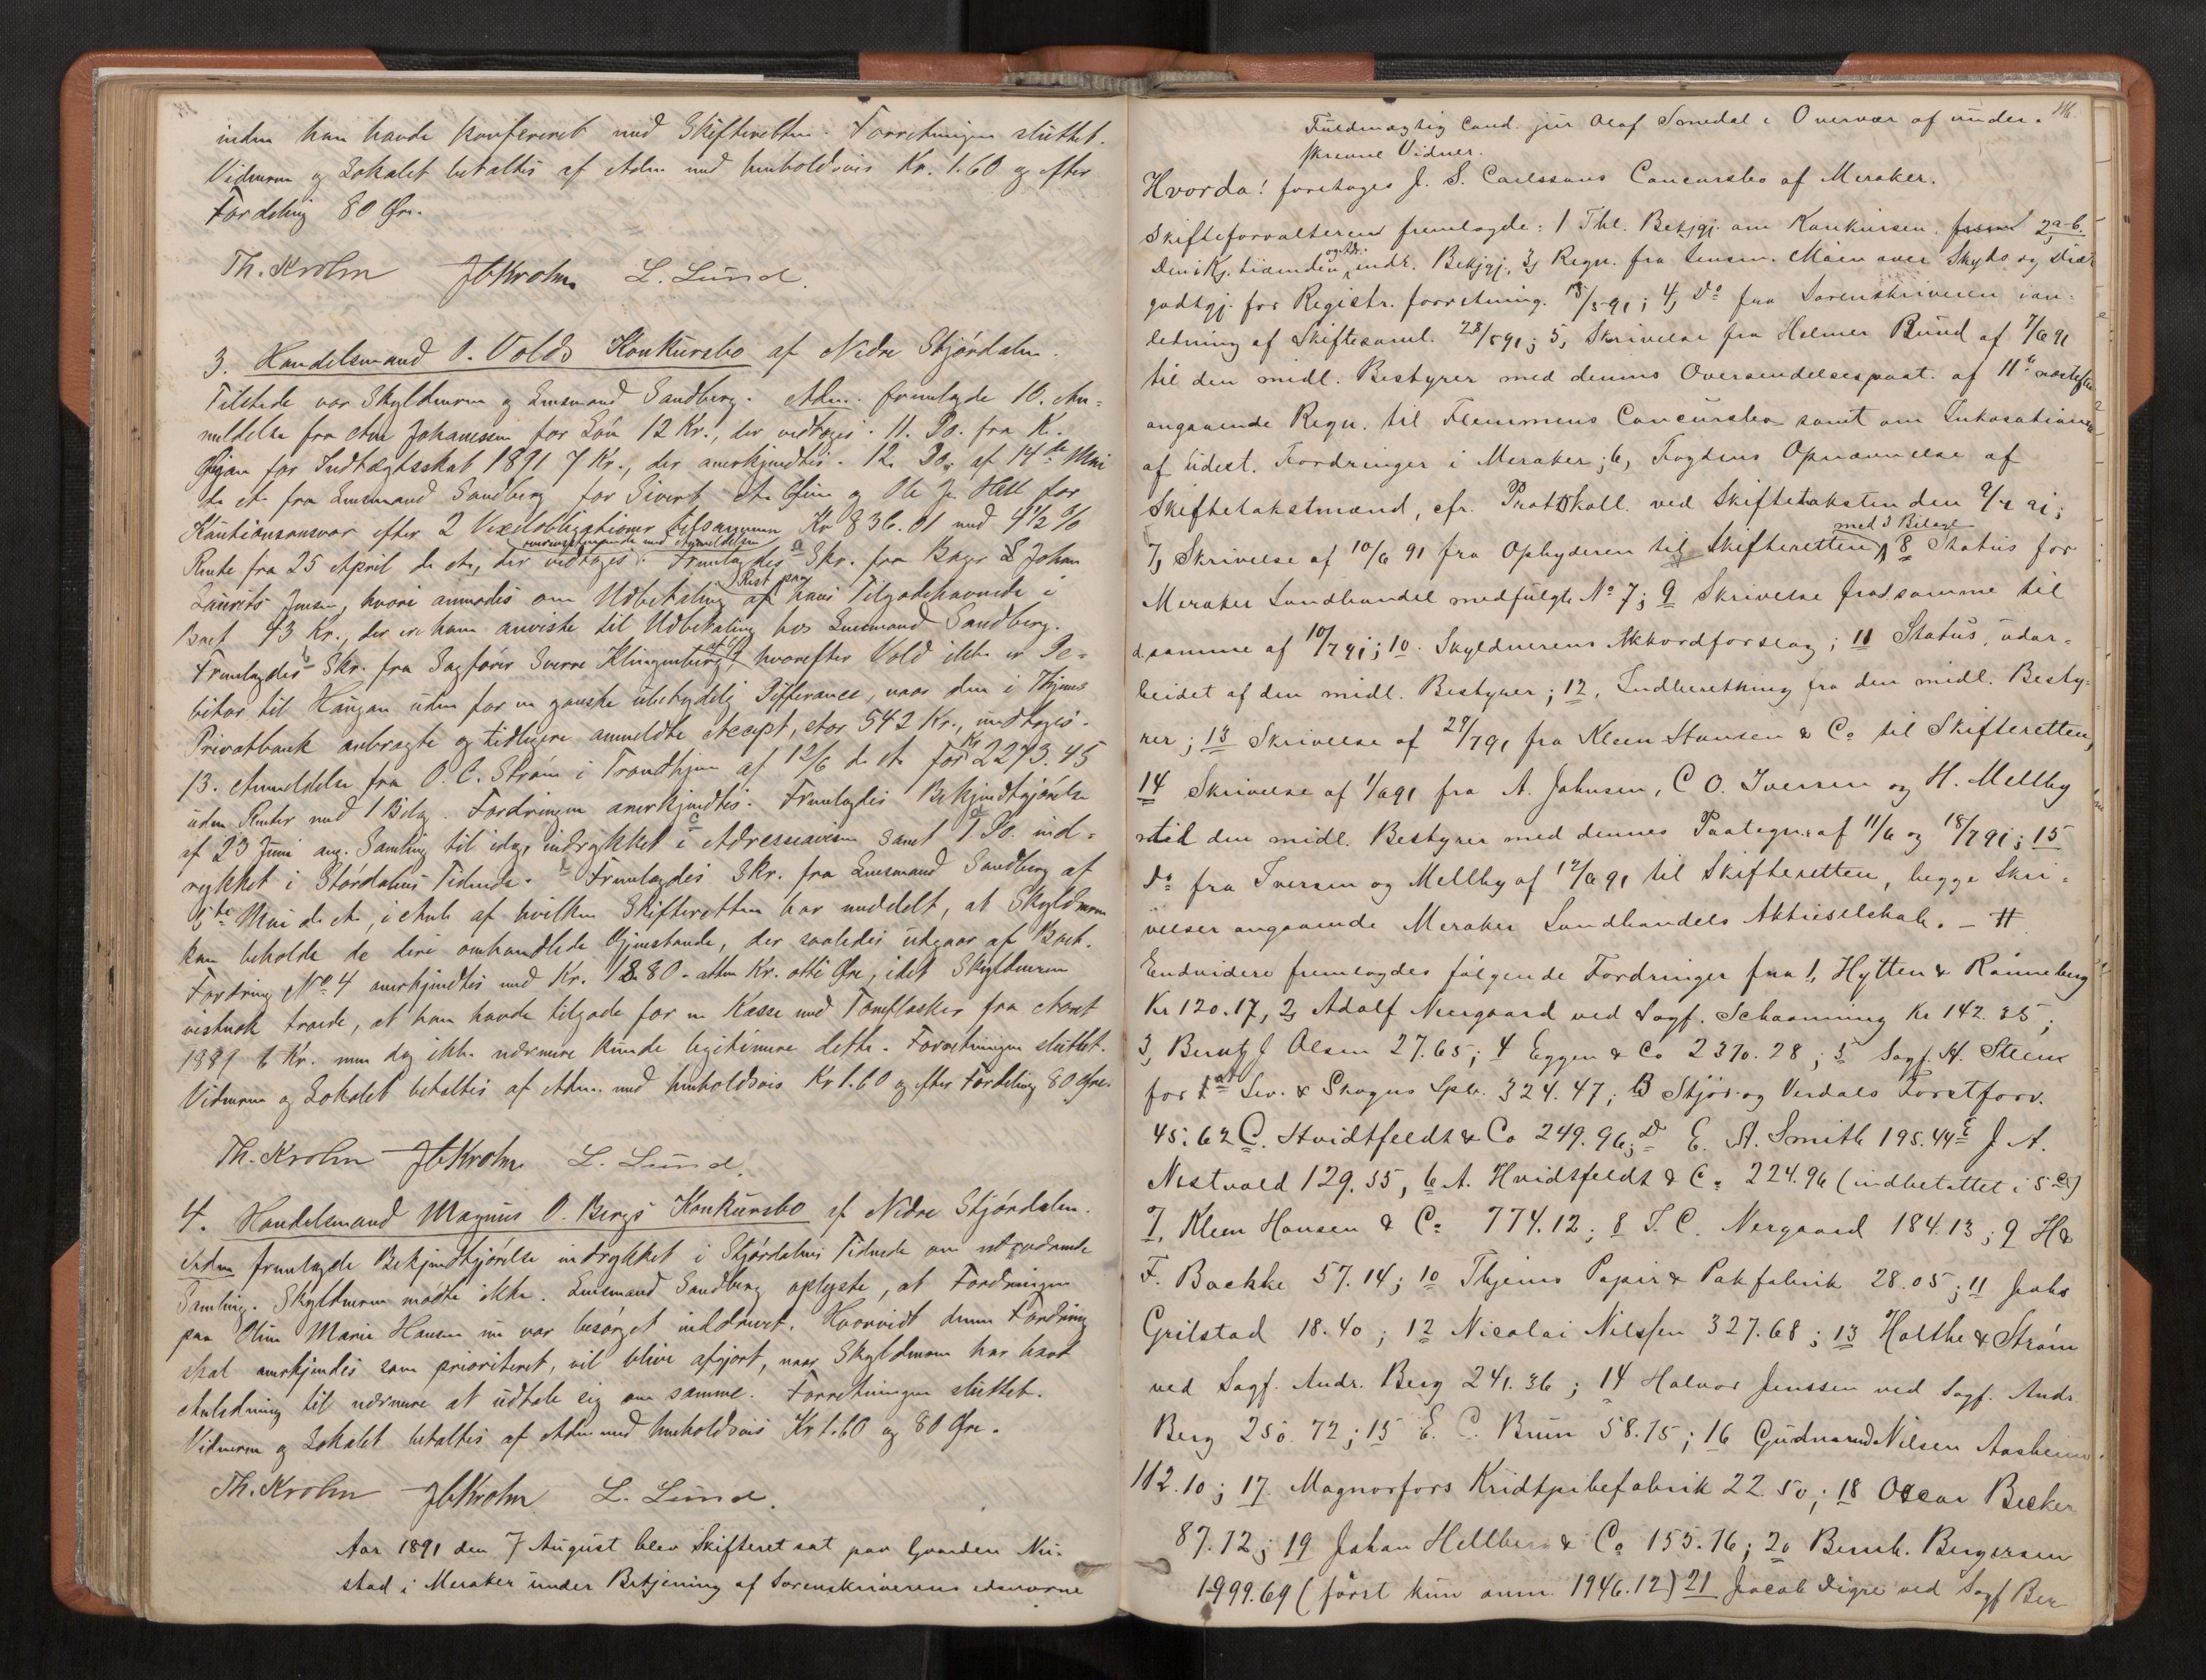 inden han havde konfereret med Skifteretten. Forretningen sluttet.
Vidnerne og Lokalet betaltes af Adm. med henholdsvis Kr. 1.60 og efter
Fordeling 80 Øre.
Th. Krohn JbKrohn L. Lund.
3. Handelsmand O. Volds Konkursbo af Nedre Stjørdalen.
Tilstede var Skyldneren og Lensmand Sandberg. Adm. fremlagde 10. An-
meldelse fra Johanessen for Løn 12 Kr., der vedtoges. 11. Do. fra K.
for Indtægtsskat 1891 7 Kr., der anerkjendtes. 12. Do. af 14de Mai
d. A. fra Lensmand Sandberg for Sivert A. og Ole J. Hell for
Kautionsansvar efter 2 Vexelobligationer tilsammen Kr 836.01 med 4 1/2 %
Rente fra 25 April d. A., der vedtoges overensstemmende med Anmeldelsen. Fremlagdes a Skr. fra Bager Johan
Laurits Jensen, hvori anmodes om Udbetaling af Rest paa hans Tilgodehavende i
Boet 43 Kr., der er ham anviste til Udbetaling hos Lensmand Sandberg.
Fremlagdes b Skr. fra Sagfører Sverre Klingenberg hvorefter Vold ikke er De-
bitor til Haugan uden for en ganske ubetydelig Differance, naar den i Thjems
Privatbank anbragte og tidligere anmeldte Accept, stor 542 Kr., undtages.
13. Anmeldelse fra O. C. Strøm i Trondhjem af 12/6 d. A. for Kr 2273.45
uden Renter med 1 Bilag. Fordringen anerkjendtes. Fremlagdes Bekjendtgjørelse
af 23 Juni ang. Samling til idag, indrykket c i Adresseavisen samt d 1 Do. ind-
rykket i Størdalens Tidende. Fremlagdes Skr. fra Lensmand Sandberg af
5te Mai d. A., i Anl. af hvilken Skifteretten har meddelt, at Skyldneren
kan beholde de deri omhandlede Gjenstande, der saaledes udgaar af Boet.
Fordring No 4 anerkjendtes med Kr. 18.80 - atten Kr. otti Øre, idet Skyldneren
vistnok troede, at han havde tilgode for en Kasse med Tomflasker fra Aaret
1889 6 Kr. men dog ikke nærmere kunde legitimere dette. Forretningen sluttet.
Vidnerne og Lokalet betaltes af Adm. med henholdsvis Kr 1.60 og efter Fordeling 80 Øre.
Th. Krohn JbKrohn L. Lund.
4. Handelsmand Magnus O. Bergs Konkursbo af Nedre Stjørdalen.
Adm fremlagde Bekjendtgjørelse indrykket i Stjørdalens Tidende om
Samling. Skyldneren mødte ikke. Lensmand Sandberg oplyste, at Fordringen
paa Oline Marie Hansen nu var besørget inddrevet. Hvorvidt denne Fordring
skal anerkjendes som prioriteret, vil blive afgjort, naar Skyldneren har havt
Anledning til nærmere at udtale sig om samme. Forretningen sluttet.
Vidnerne og Lokalet betaltes af Adm. med henholdsvis Kr 1.60 og 80 Øre.
Th. Krohn JbKrohn L. Lund.
Aar 1891 den 7 August blev Skifteret sat paa Gaarden Nu-
stad i Meraker under Betjening af Sorenskriverens edsvorne
116.
Fuldmægtig Cand. jur Olaf Smedal i Overvær af under-
skrevne Vidner.
Hvorda! foretoges J. S. Carlssons Concursbo af Meraker.
Skifteforvalteren fremlagde: 1 Thl. Bekjgj. om Konkursen, 2, a-b.
Den i Kj. tidenden og Adr. indr. Bekjgj., 3, Regn. fra Lensm. Moen over Skyds og Diæt
godtgj. for Registr. forretning. 18/5 91; 4, Do fra Sorenskriveren i an-
ledning af Skiftesaml. 28/5 91; 5, Skrivelse fra Helmer Bund af 7/6 91
til den midl. Bestyrer med dennes Oversendelsespaat. af 11te næstefter
angaaende Regn. til Flemmens Concursbo samt om Inkasationen
af udest. Fordringer i Meraker; 6, Fogdens Opnævnelse af
Skiftetakstmænd, cfr. Protokoll ved Skiftetaksten den 9/7 91;
7, Skrivelse af 10/6 91 fra Ophyderen til Skifteretten med 3 Bilage, 8 Status for
Meraker Landhandel medfulgt No 7; 9 Skrivelse fra samme til
samme af 10/7 91; 10. Skyldnerens Akkordforslag; 11 Status, udar-
beidet af den midl. Bestyrer; 12, Indberetning fra den midl. Besty-
rer; 13 Skrivelse af 29/7 91 fra Klem Hansen & Co til Skifteretten,
14 Skrivelse af 1/6 91 fra A. Johnsen, C O. Iversen og H. Mellby
til den midl. Bestyrer med dennes Paategn. af 11/6 og 18/7 91; 15
Do fra Iversen og Mellby af 12/6 91 til Skifteretten, begge Skri-
velser angaaende Meraker Landhandels Aktieselskab. - #
Endvidere fremlagdes følgende Fordringer fra 1, Hytten & Rønneberg
Kr 120.17, 2, Adolf Neergaard ved Sagf. Schaanning Kr 142.35;
3, Berntz J Olsen 27.65; 4 Eggen & Co 2370.28; 5 Sagf. H. Steen
for A Lev. & Skogns Spb. 324.47; B Stjør- og Verdals Forstforv.
45.62 C. Hvidtfeldt & Co 249.96; D E. A. Smith 195.44 E J. A.
Nestvold 129.55, 6 A. Hvidtfeldt & Co 224.96 (indbefattet i 5 C)
7, Klem Hansen & Co 774.12; 8 I. C. Nergaard 184.13; 9 H &
F. Bachke 57.14; 10 Thjems Papir & Pakfabrik 28.05; 11 Jakob
Grilstad 18.40; 12 Nicolai Nilssen 327.68; 13 Halthe & Strøm
ved Sagf. Andr. Berg 241.36; 14 Halvor Jenssen ved Sagf. Andr.
Berg 250.72; 15 E. C. Brun 58.75; 16 Gudmund Nilsen Aasheim
112.10; 17. Magnorfors Kridtpibefabrik 22.50; 18 Oscar Becker
87.72; 19 Johan Hellberg & Co 155.76; 20 Bernh. Bergersen
1999.69 (først kun anm. 1946.12) 21 Jacob Digre ved Sagf Ber